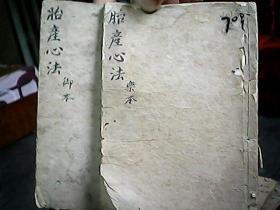 胎產心法
樂本
胎產心法
御本